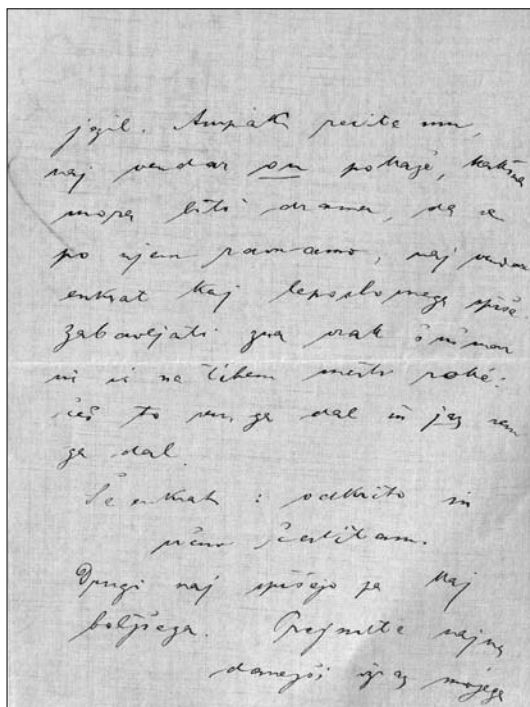 jezil. Ampak recite mu,
naj vendar on pokaže, kakšna
mora biti drama, da se
po njem ravnamo, naj vendar
enkrat kaj leposlovnega spiše
zabavljati zna vsak
in si na tihem mané roké:
češ to sem ga dal in jaz sem
ga dal.
Še enkrat: odkrito in
srčno čestitam.
Drugi naj spišejo pa kaj
boljšega. Prejmite najuv
danejši izraz mojega